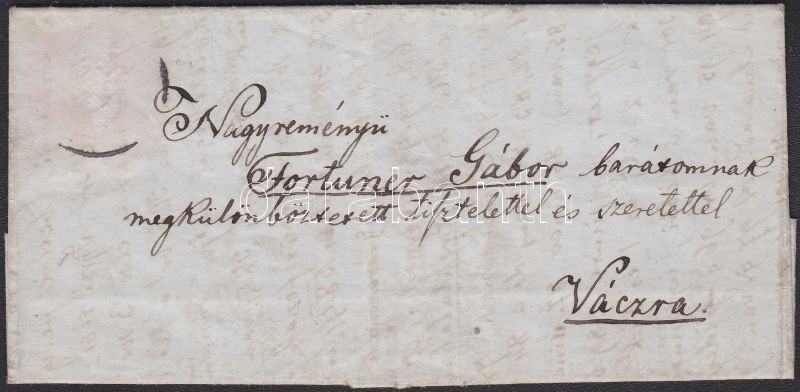 Nagyreményü
Fortuner Gábor barátomnak
megkülönböztetett Tisztelettel és szeretettel
Váczra.